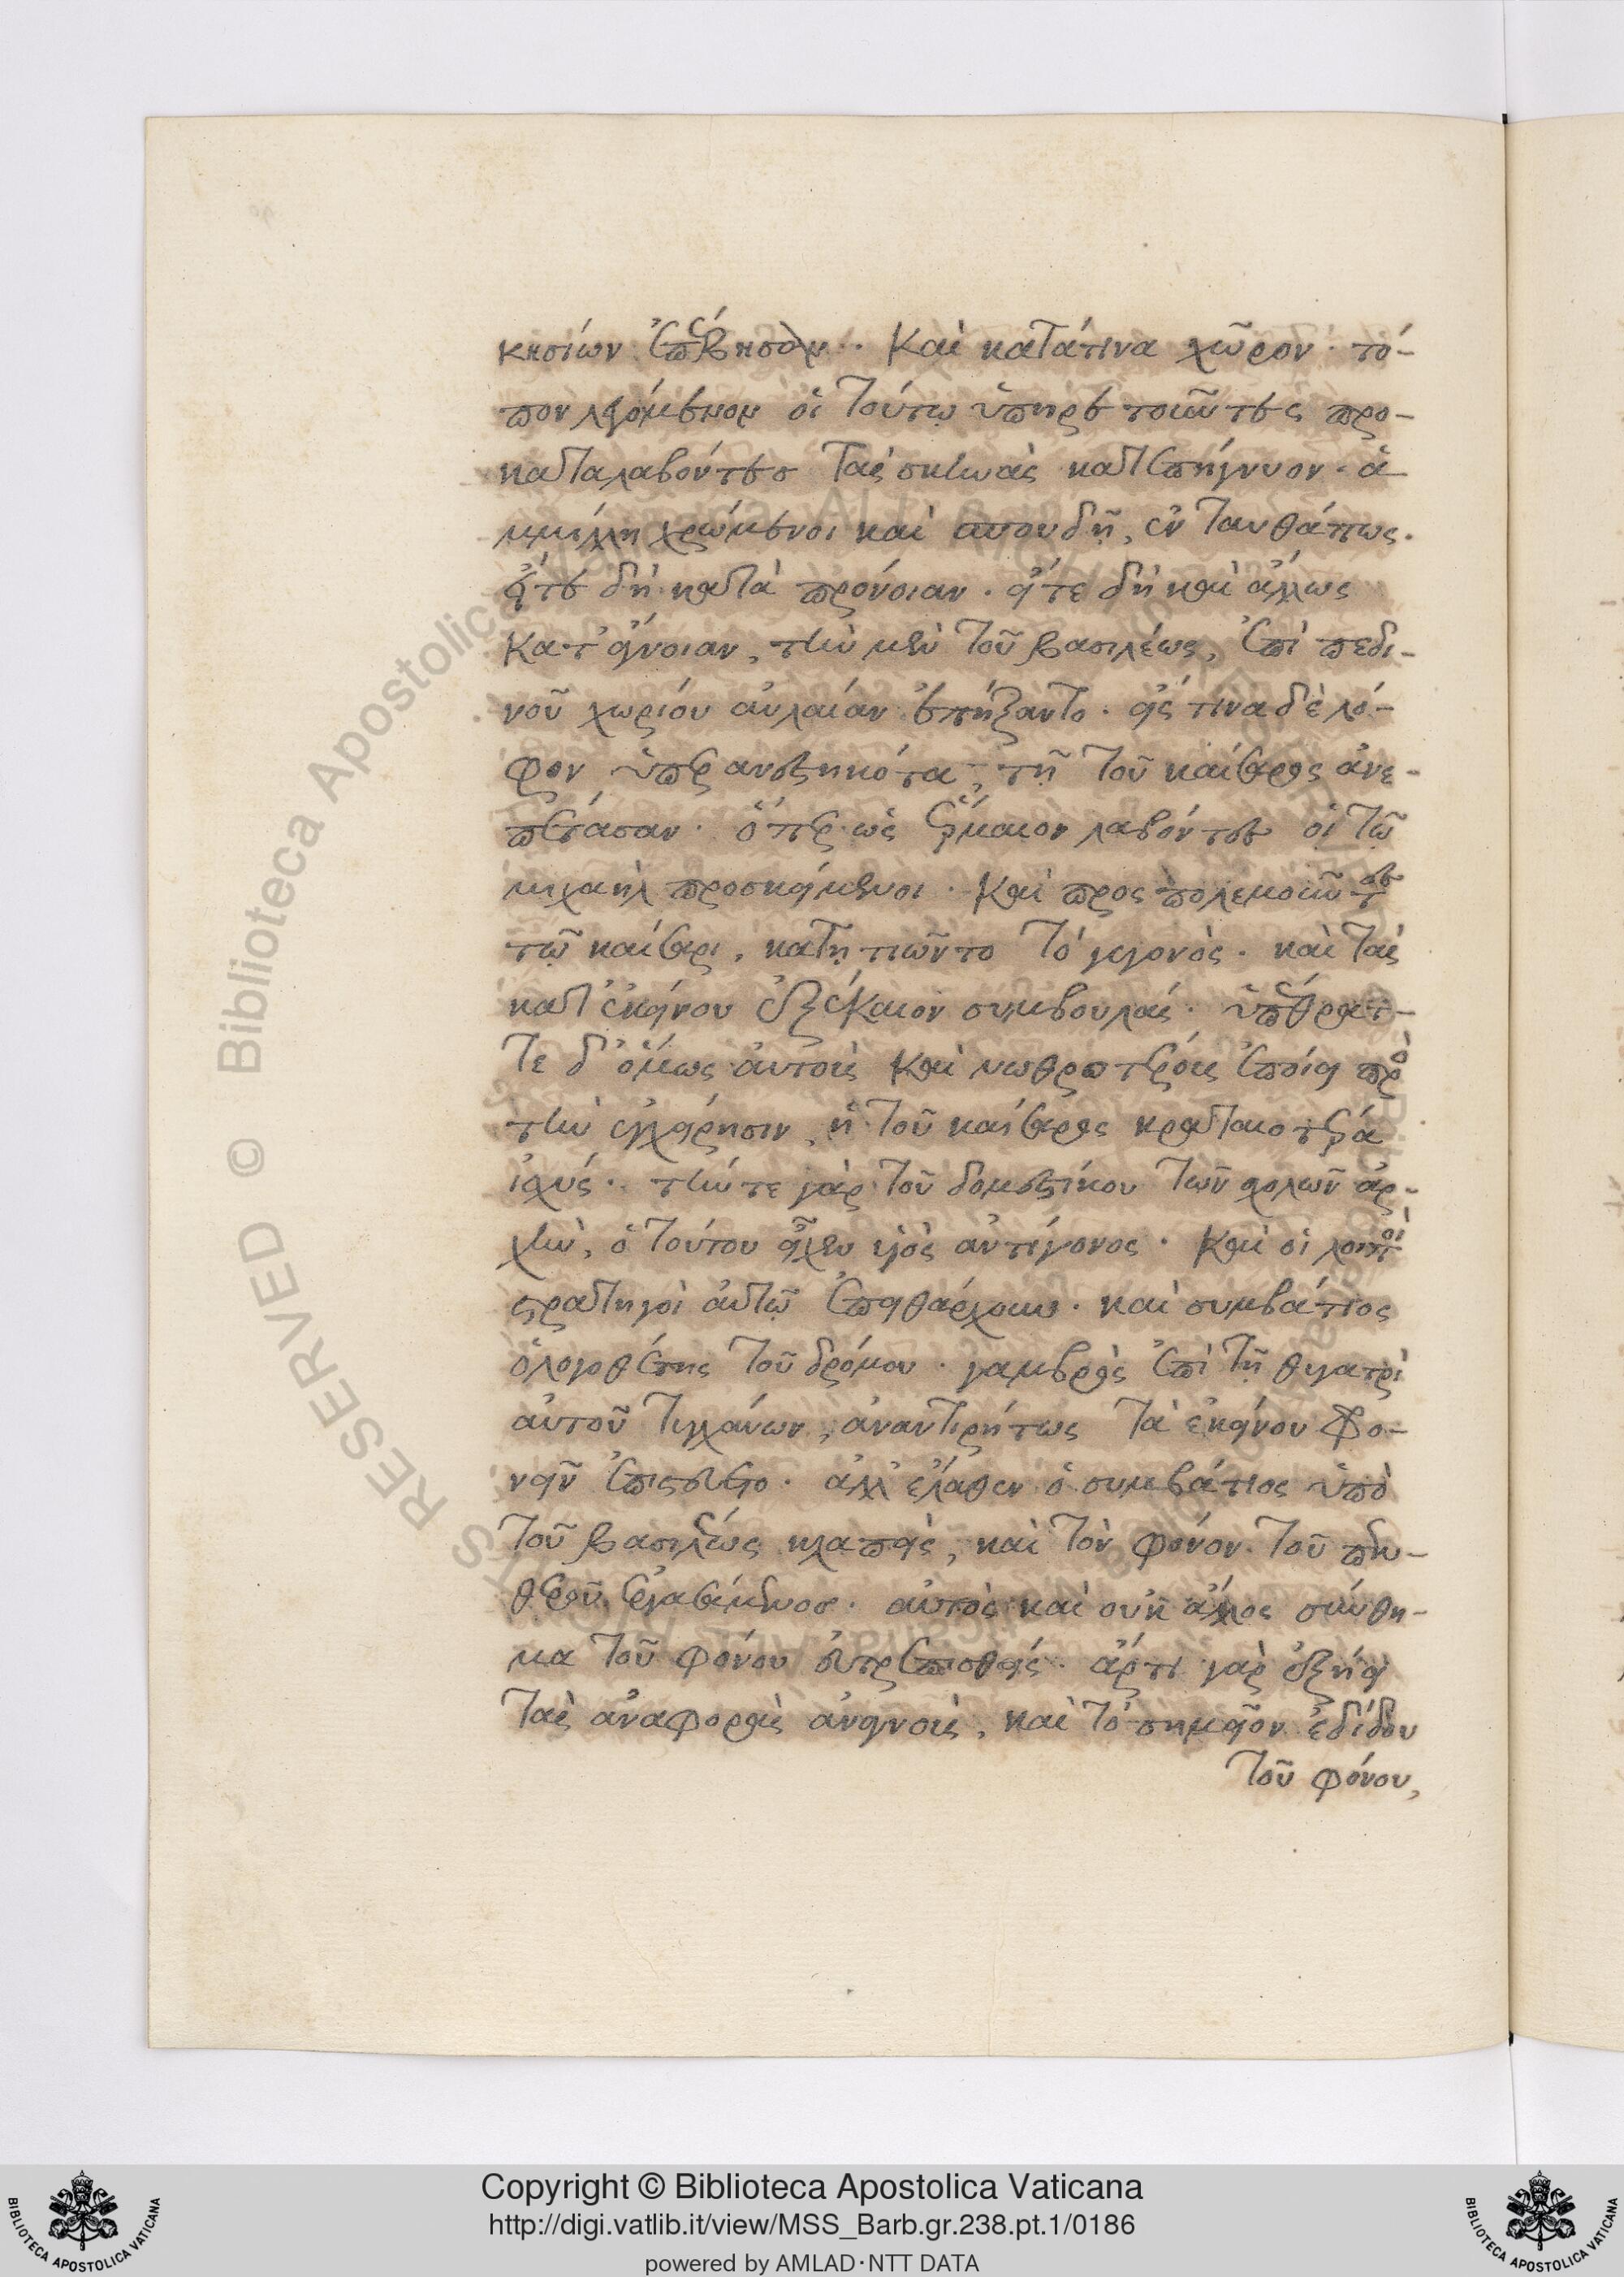 κησίων ἐπέβησαν. Καὶ κατάτινα χῶρον. τό-
πον λεγόμενον οἱ τούτω ὑπηρετοῦντες προ-
καταλαβόντες τὰς σκηνὰς κατεπήγνυον. ἁ
μίλλη χρώμενοι καὶ σπουδῆ, ἐν ταυθάπως.
εἴτε δὴ κατὰ πρόνοιαν. εἴτε δὴ καὶ ἄλλως
κατ εὔνοιαν, τὴν μὲν τοῦ βασιλέως, ἐπὶ πεδι-
νοῦ χωρίου αὐλαίαν ἐπήξαντο. εἴς τινα δὲ λό-
φον ὑπερανεστηκότα, τῆ τοῦ καίσαρος ἀνε-
πέτασαν. ὅπερ ὡς ἕρμαιον λαβόντες οἱ τῶ
μιχαὴλ προσκείμενοι. Καὶ προσπολεμοῦντες
τῶ καίσαρι, κατητιῶντο τὸ γεγονὸς. καὶ τὰς
κατ ἐκείνου ἐξέκαιον συμβουλάς. ὑπέθρατ-
τε δ' ὅμως αὐτοὺς καὶ νωθροτέρους ἐποίει πρὸ
τὴν ἐγχείρησιν, ἡ τοῦ καίσαρος κραταιοτέρα
ἰσχύς. τήν τε γὰρ τοῦ δομεστίκου τῶν σχολῶν ἀρ-
χὴν, ὁ τούτου εἶχεν υἱὸς ἀντίγονος. Καὶ οἱ λοιποὶ
στρατηγοὶ αὐτῶ ἐπειθάρχουν. καὶ συμβάτιος
ὁ λογοθέτης τοῦ δρόμου. γαμβρὸς ἐπὶ τῆ θυγατρὶ
αὐτοῦ τυγχάνων, ἀναντιρήτως τὰ ἐκείνου φρο-
νεῖν ἐπιστεύετο. ἀλλ' ἔλαθεν ὁ συμβάτιος ὑπὸ
τοῦ βασιλέως κλαπεὶς, καὶ τὸν φόνον τοῦ πεν-
θεροῦ ἐργασάμενος. αὐτὸς καὶ οὐκ ἄλλος σύνθη-
μα τοῦ φόνου ἐπισθείς. ἄρτι γὰρ ἐξήει
τὰς ἀναφορὰς ἀνεγνοὺς, καὶ τὸ σημεῖον ἐδίδου
τοῦ φόνου,
Copyright © Biblioteca Apostolica Vaticana
http://digi.vatlib.it/view/MSS_Barb.gr.238.pt.1/0186
powered by AMLAD·NTT DATA
BIBLIOTECA APOSTOLICA VATICANA
BIBLIOTECA APOSTOLICA VATICANA